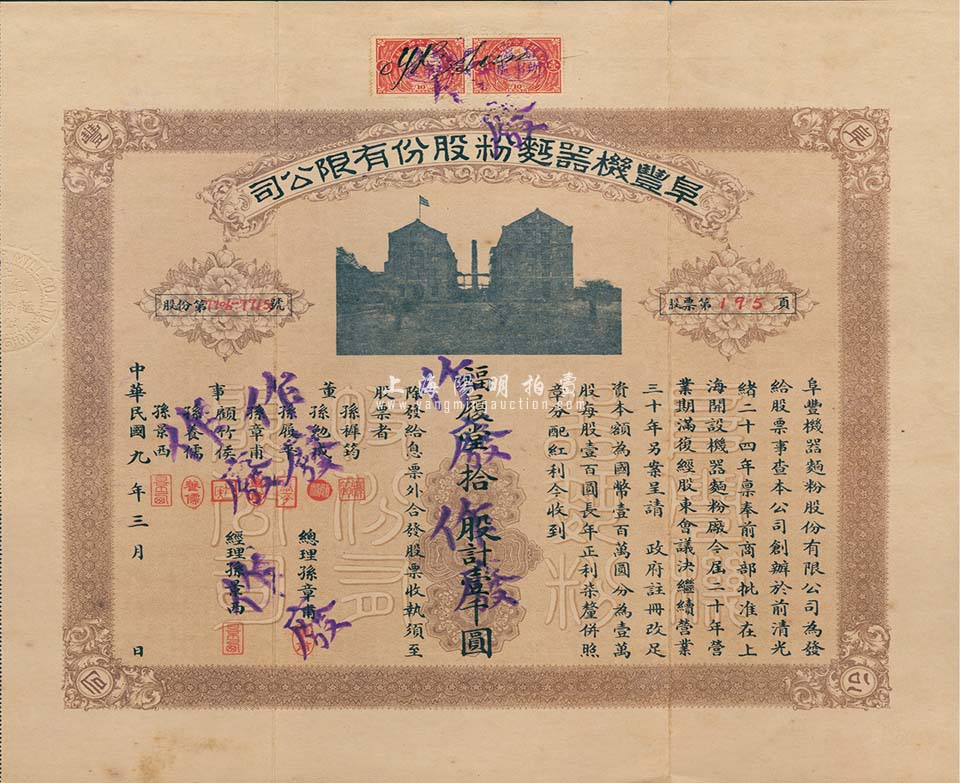 阜豐機器麪粉股份有限公司
阜
豐
公
司
股票第195頁
股份第7706-7715號
阜豐機器麵粉股份有限公司為發
給股票事查本公司創辦於前清光
緒二十四年稟奉前商部批准在上
海開設機器麵粉廠今屆二十年營
業期滿復經股東會議決繼續營業
三十年另案呈請 政府註冊改足
資本額為國幣壹百萬圓分為壹萬
股每股壹百圓長年正利柒釐併照
章分配紅利今收到
福履堂拾股計壹千圓
除發給息票外合發股票收執須至
股票者
董事
孫章甫
顧竹侯
孫養儒
孫景西
總理孫章甫
經理孫景西
中華民國九年三月 日
作廢
作廢
上海陽明拍賣
www.yangmingauction.com